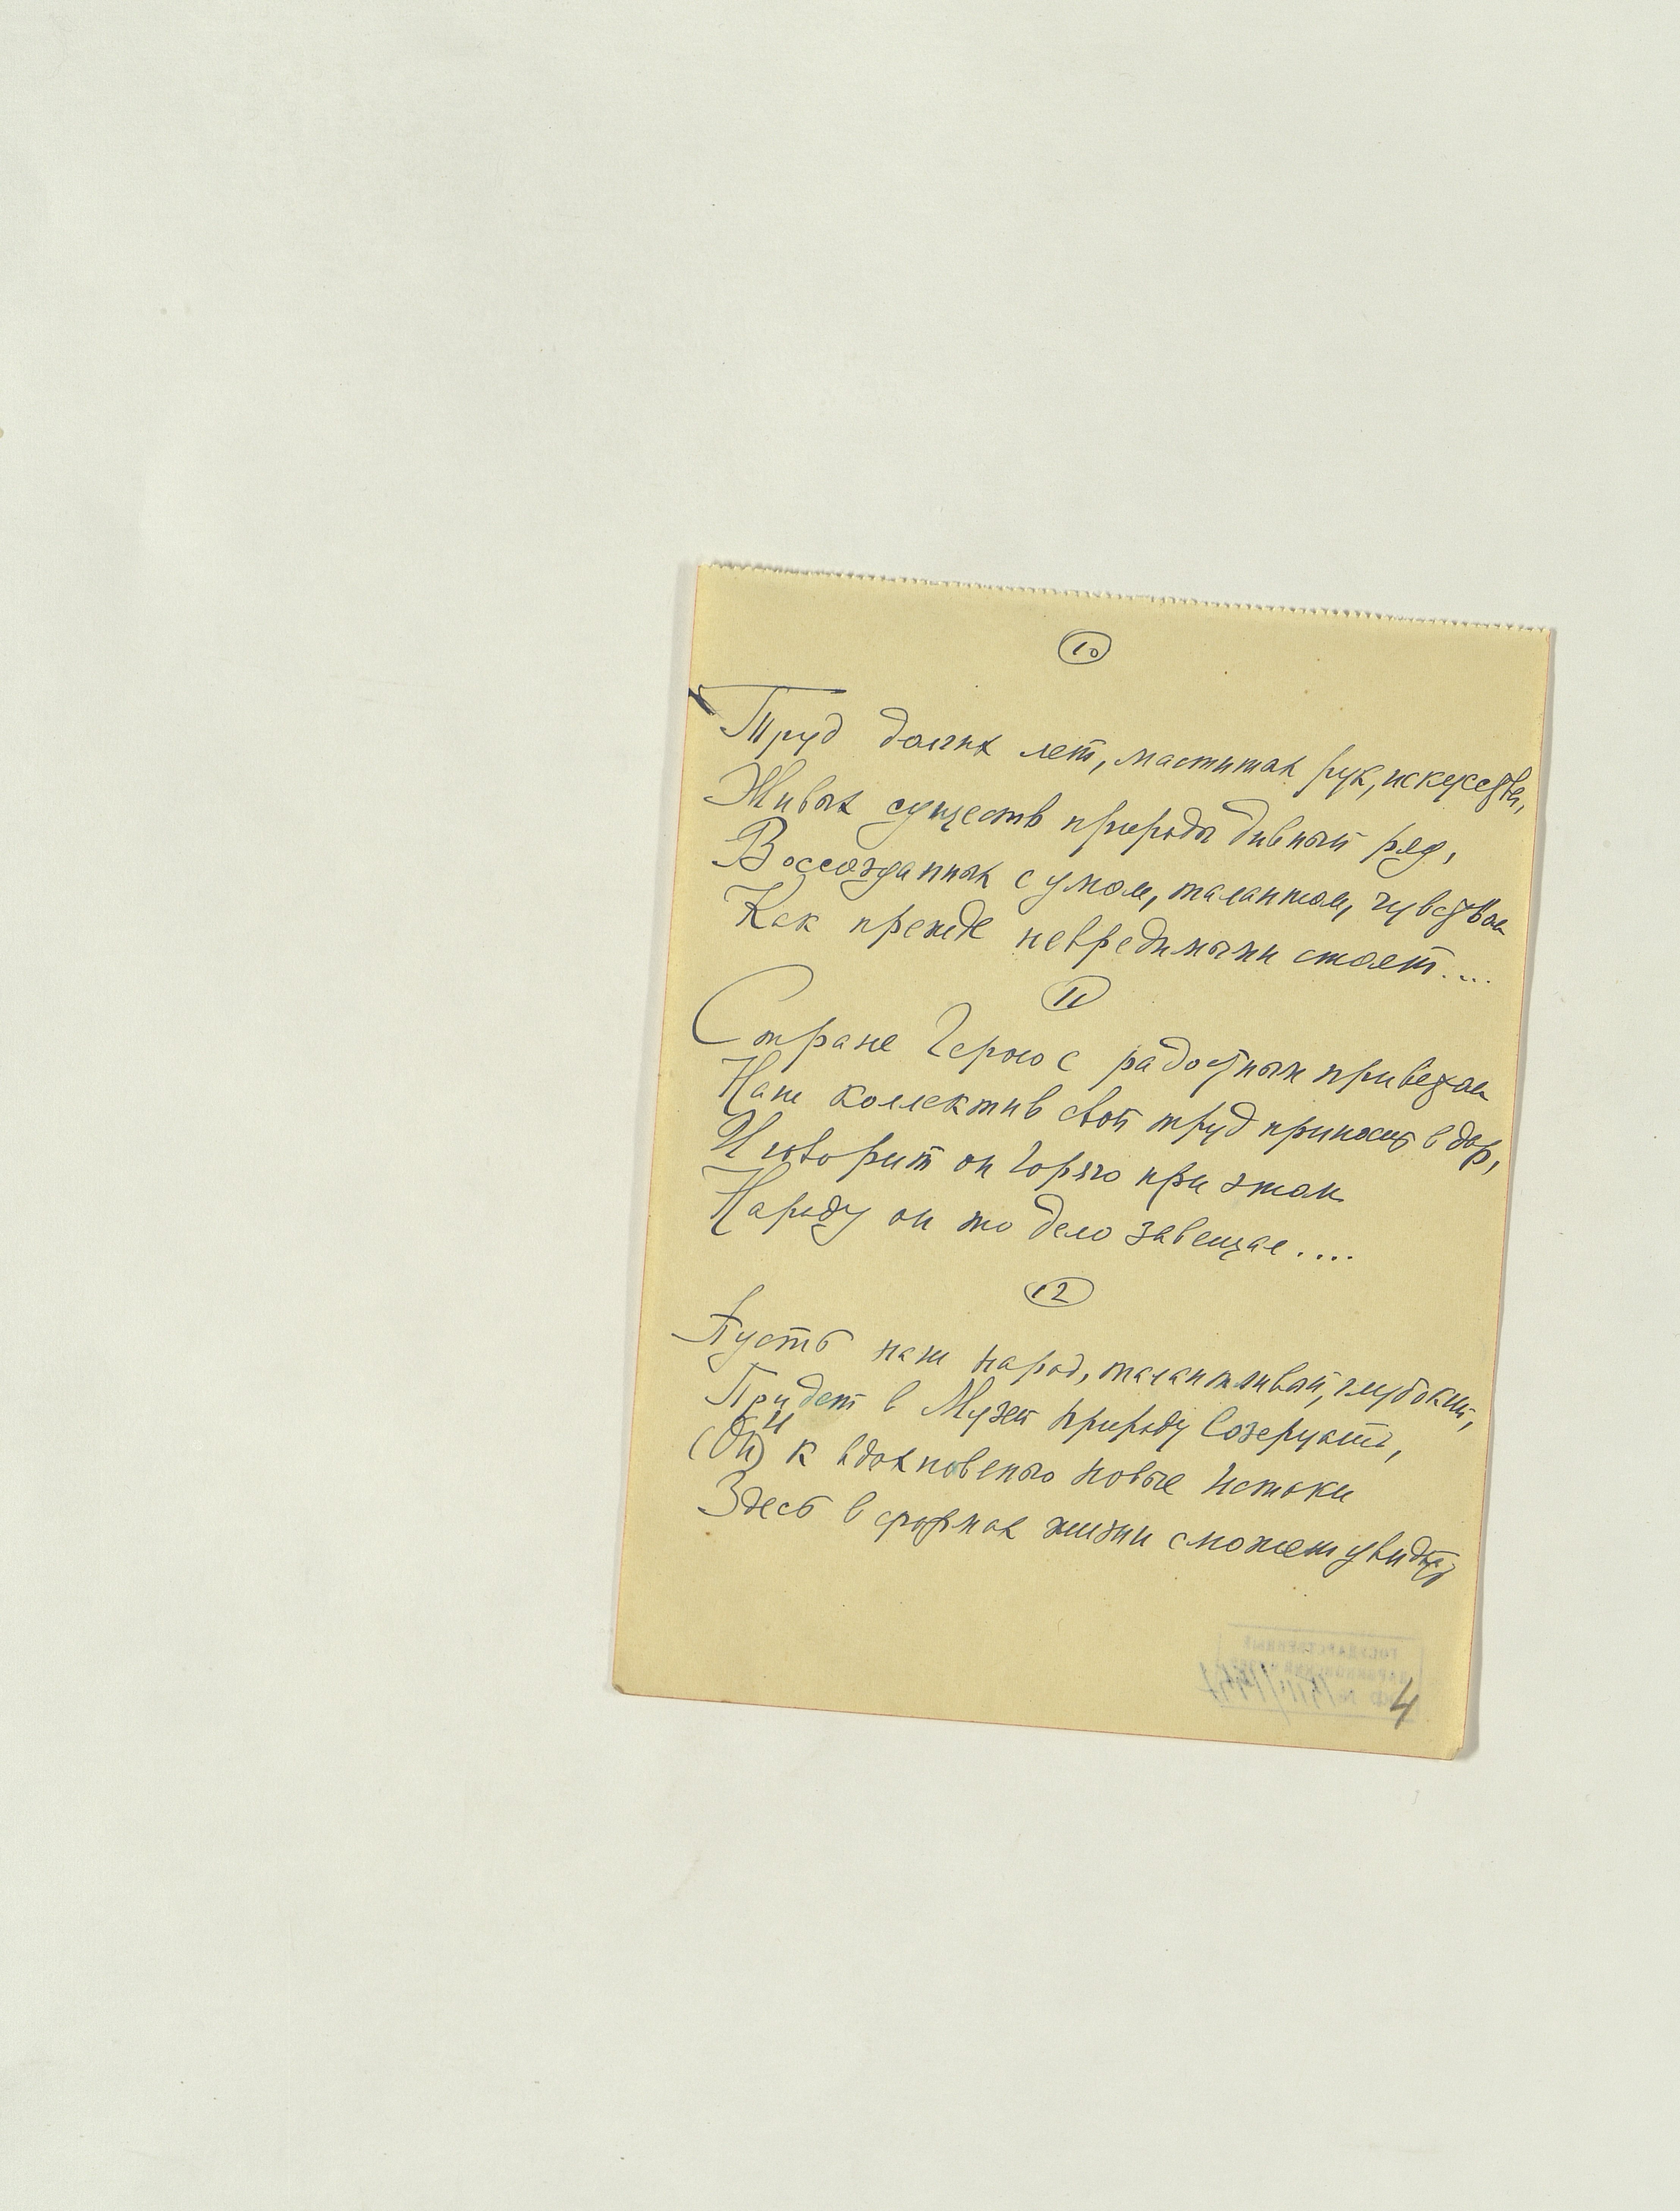 10
Труд долгих лет, маститых рук, искусства,
Живых существ природы дивный ряд,
Воссозданных с умом, талантом, чувством
Как прежде невредимыми стоят....
11
Стране Герою с радостным приветом
Наш коллектив свой труд приносит в дар,
И говорит он горячо при этом
Народу он то дело завещал....
12
Пусть наш народ, талантливый, глубокий,
Придет в Музей природу созерцать,
(Он) И к вдохновенью новые истоки
Здесь в формах жизни сможет увидать
ГОСУДАРСТВЕННЫЙ
ДАРВИНОВСКИЙ МУЗЕЙ
4